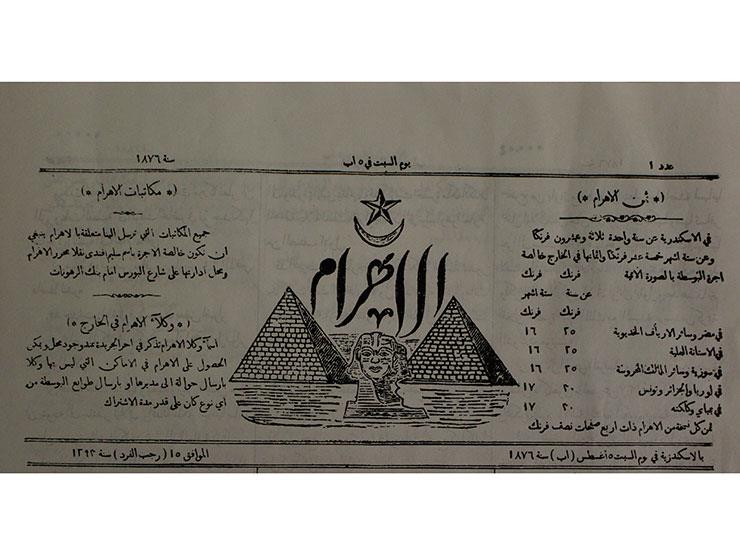 عدد ١
يوم السبت في ٥ اب
سنة ١٨٧٦
(* ثمن الاهرام *)
في الاسكندرية عن سنة واحدة ثلاثة وعشرون فرنكا
وعن سنة اشهر خمسة عشر فرنكا واثمانها في الخارج خالصة
اجرة البوسطة بالصورة الاتية
فرنك فرنك
عن سنة ستة اشهر
فرنك فرنك
في مصر وسائر الارياف الخديوية ٢٥ ١٦
في الاستانة العلية ٢٥ ١٦
في سورية وسائر الممالك المحروسة ٢٥ ١٦
في اوربا والجزائر وتونس ٢٠ ١٧
في بمباي وكلكته ٢٠ ١٧
ثمن كل نسخة من الاهرام ذات اربع صفحات نصف فرنك
الاهرام
(* مكاتبات الاهرام *)
جميع المكاتبات التي ترسل الينا متعلقة بالاهرام ينبغي
ان تكون خالصة الاجرة باسم سليم افندي نقلا محرر الاهرام
ومحل ادارتها على شارع البورس امام بنك الرهونات
(* وكلاء الاهرام في الخارج *)
اسماء وكلا الاهرام تذكر في اخر الجريدة بمدوجود محل ويمكن
الحصول على الاهرام في الاماكن التي ليس بها وكلا
بارسال حوالة الى مديرها او بارسال طوابع البوسطة من
اي نوع كان على قدر مدة الاشتراك
بالاسكندرية في يوم السبت ٥ اغسطس (اب) سنة ١٨٧٦
الموافق ١٥ (رجب الفرد) سنة ١٢٩٣